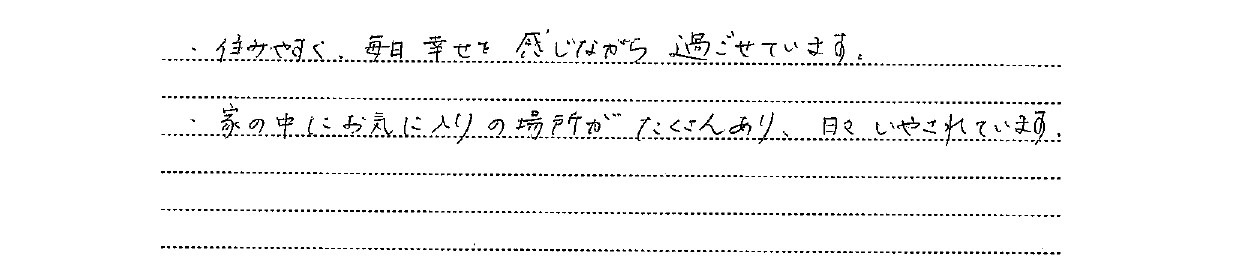 ・住みやすく、毎日幸せを感じながら過ごせています。
・家の中にお気に入りの場所がたくさんあり、日々いやされています。